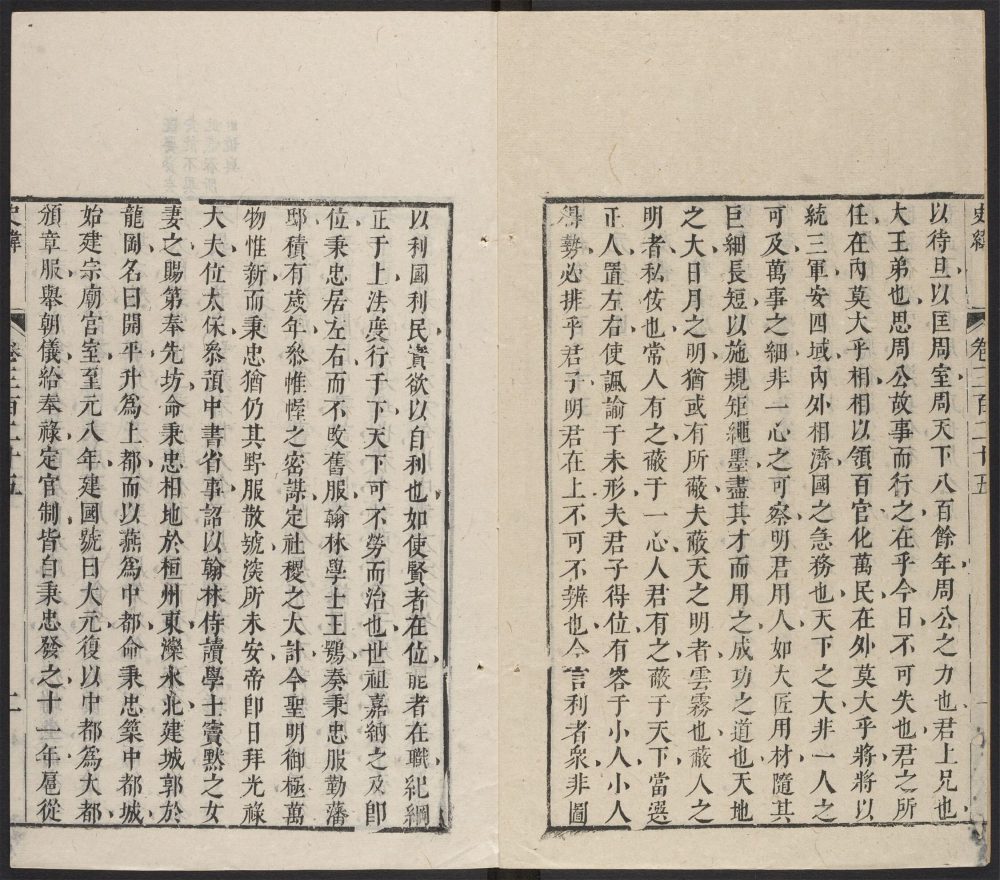 史緯
卷二百二十五
一
以待旦以匡周室周天下八百餘年周公之力也君上兄也
大王弟也思周公故事而行之在乎今日不可失也君之所
任在內莫大乎相相以領百官化萬民在外莫大乎將將以
統三軍安四域內外相濟國之急務也天下之大非一人之
可及萬事之細非一心之可察明君用人如大匠用材隨其
巨細長短以施規矩繩墨盡其才而用之成功之道也天地
之大日月之明猶或有所蔽夫蔽天之明者雲霧也蔽人之
明者私佞也常人有之蔽于一心人君有之蔽于天下當選
正人置左右使諷諭于未形夫君子得位有容于小人小人
得勢必排乎君子明君在上不可不辨也今言利者衆非圖
以利國利民實欲以自利也如使賢者在位能者在職紀綱
正于上法度行于下天下可不勞而治也世祖嘉納之及卽
位秉忠居左右而不改舊服翰林學士王鶚奏秉忠服勤藩
邸積有歲年叅惟幄之密謀定社稷之大計今聖明御極萬
物惟新而秉忠猶仍其野服散號深所未安帝卽日拜光祿
大夫位太保叅預中書省事詔以翰林侍讀學士竇黙之女
妻之賜第奉先坊命秉忠相地於桓州東灤水北建城郭於
龍岡名曰開平升爲上都而以燕爲中都命秉忠築中都城
始建宗廟宮室至元八年建國號曰大元復以中都爲大都
頒章服舉朝儀給奉祿定官制皆自秉忠發之十一年扈從
史緯
卷三百二十五
二